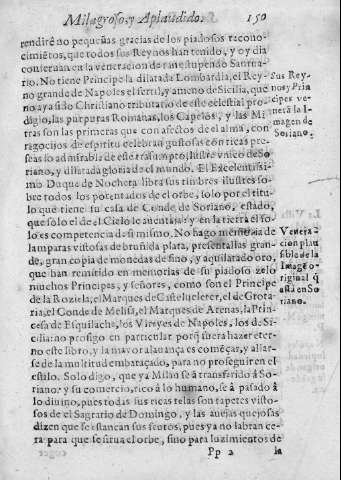 Milagroso, y Aplaudido. 150
rendirẽ no pequeñas gracias de los piadosos recono-
cimiẽtos, que todos sus Reynos han tenido, y oy dia
conseruan en la veneracion de tan estupendo Santua-
rio. No tiene Principe la dilatada Lombardia, el Rey-
no grande de Napoles el fertil, y ameno de Sicilia, que
no aya sido Christiano tributario de este celestial pro-
digio, las purpuras Romanas, los Capelos, y las Mi-
tras son las primeras que con afectos de el alma, con
ragocijos de espiritu celebran gustosas con ricas pre-
seas lo admirable de este trasumpto, lustre vnico de So-
riano, y dilatada gloria de el mundo. El Excelentissi-
mo Duque de Nochera libra sus timbres ilustres so-
bre todos los potentados de el orbe, solo por el titu-
lo que tiene su casa de Conde de Soriano, estado,
que solo el de el Cielo le auentaja: y en la tierra el so-
lo es competencia de si mismo. No hago memoria de
lamparas vistosas de bruñida plata, presentallas gran-
de, gran copia de monedas de fino, y aquilatado oro,
que han remitido en memorias de su piadoso zelo
muchos Principes, y señores, como son el Principe
de la Roziela, el Marques de Castelueterer, el de Grota-
ria, el Conde de Melisa, el Marques de Arenas, la Prin-
cesa de Esquilache, los Vireyes de Napoles, los de Si-
cilia: no prosigo en particular porq̃ fuera hazer eter-
no este libro, y la mayor alauança es comẽçar, y allar-
se de la multitud embaraçado, para no proseguir en el
estilo. Solo digo, que ya Milan se à transferido à So-
riano: y su comercio, rico à lo humano, se à pasado à
lo diuino, pues todas sus ricas telas son tapetes visto-
sos de el Sagrario de Domingo, y las auejas quejosas
dizen que se estancan sus frutos, pues ya no labran ce-
ra para que se sirua el orbe, sino para luzimientos de
Pp 2 la
Sus Rey-
nos y Prin
cipes ve-
nerã la I-
magen de
Soriano.
Venera-
cion plau
sible de la
Imagẽ o-
riginal q̃
està en So
riano.